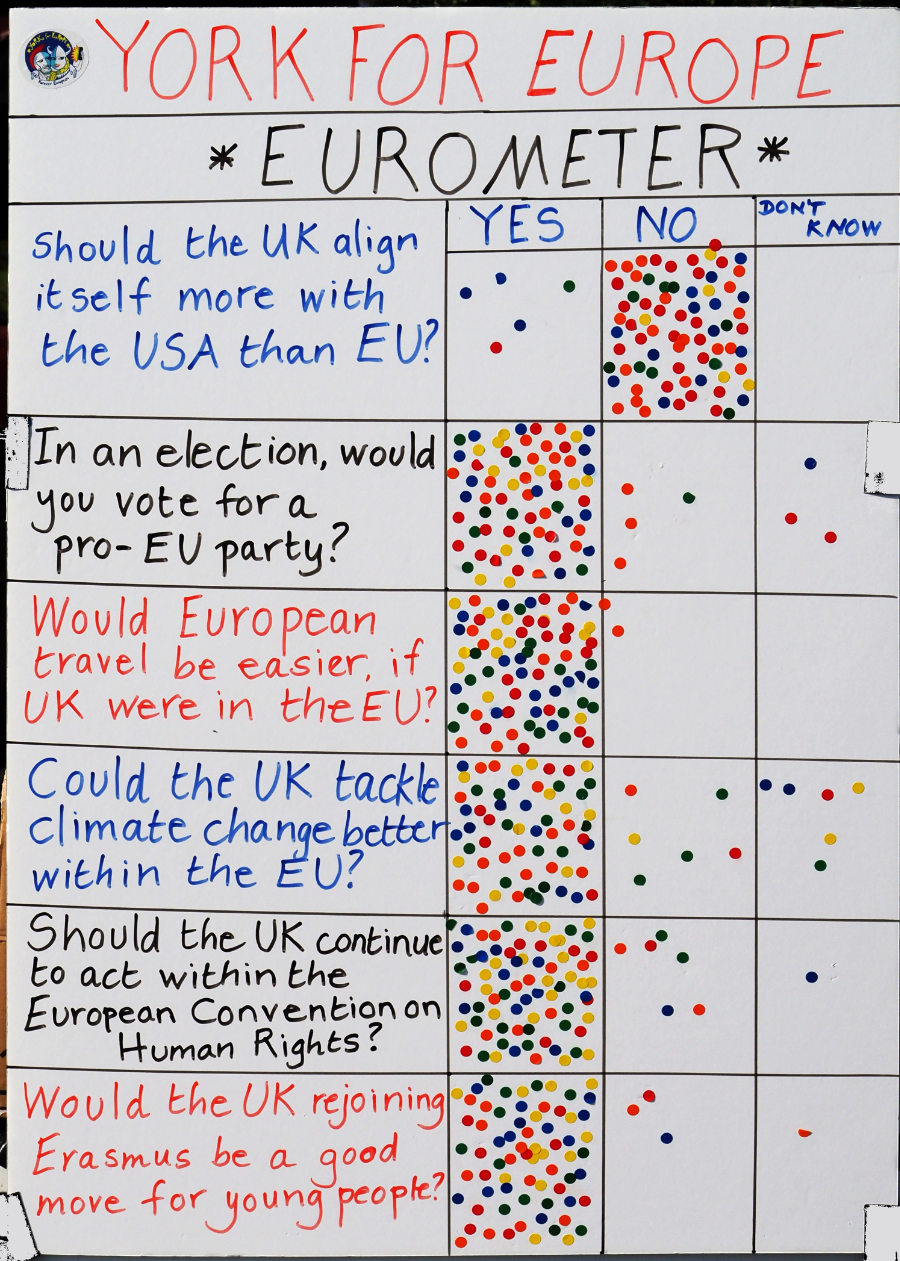 YORK FOR EUROPE
* EUROMETER *
YES NO DON'T KNOW
Should the UK align
itself more with
the USA than EU?
In an election, would
you vote for a
pro-EU party?
Would European
travel be easier, if
UK were in the EU?
Could the UK tackle
climate change better
within the EU?
Should the UK continue
to act within the
European Convention on
Human Rights?
Would the UK rejoining
Erasmus be a good
move for young people?